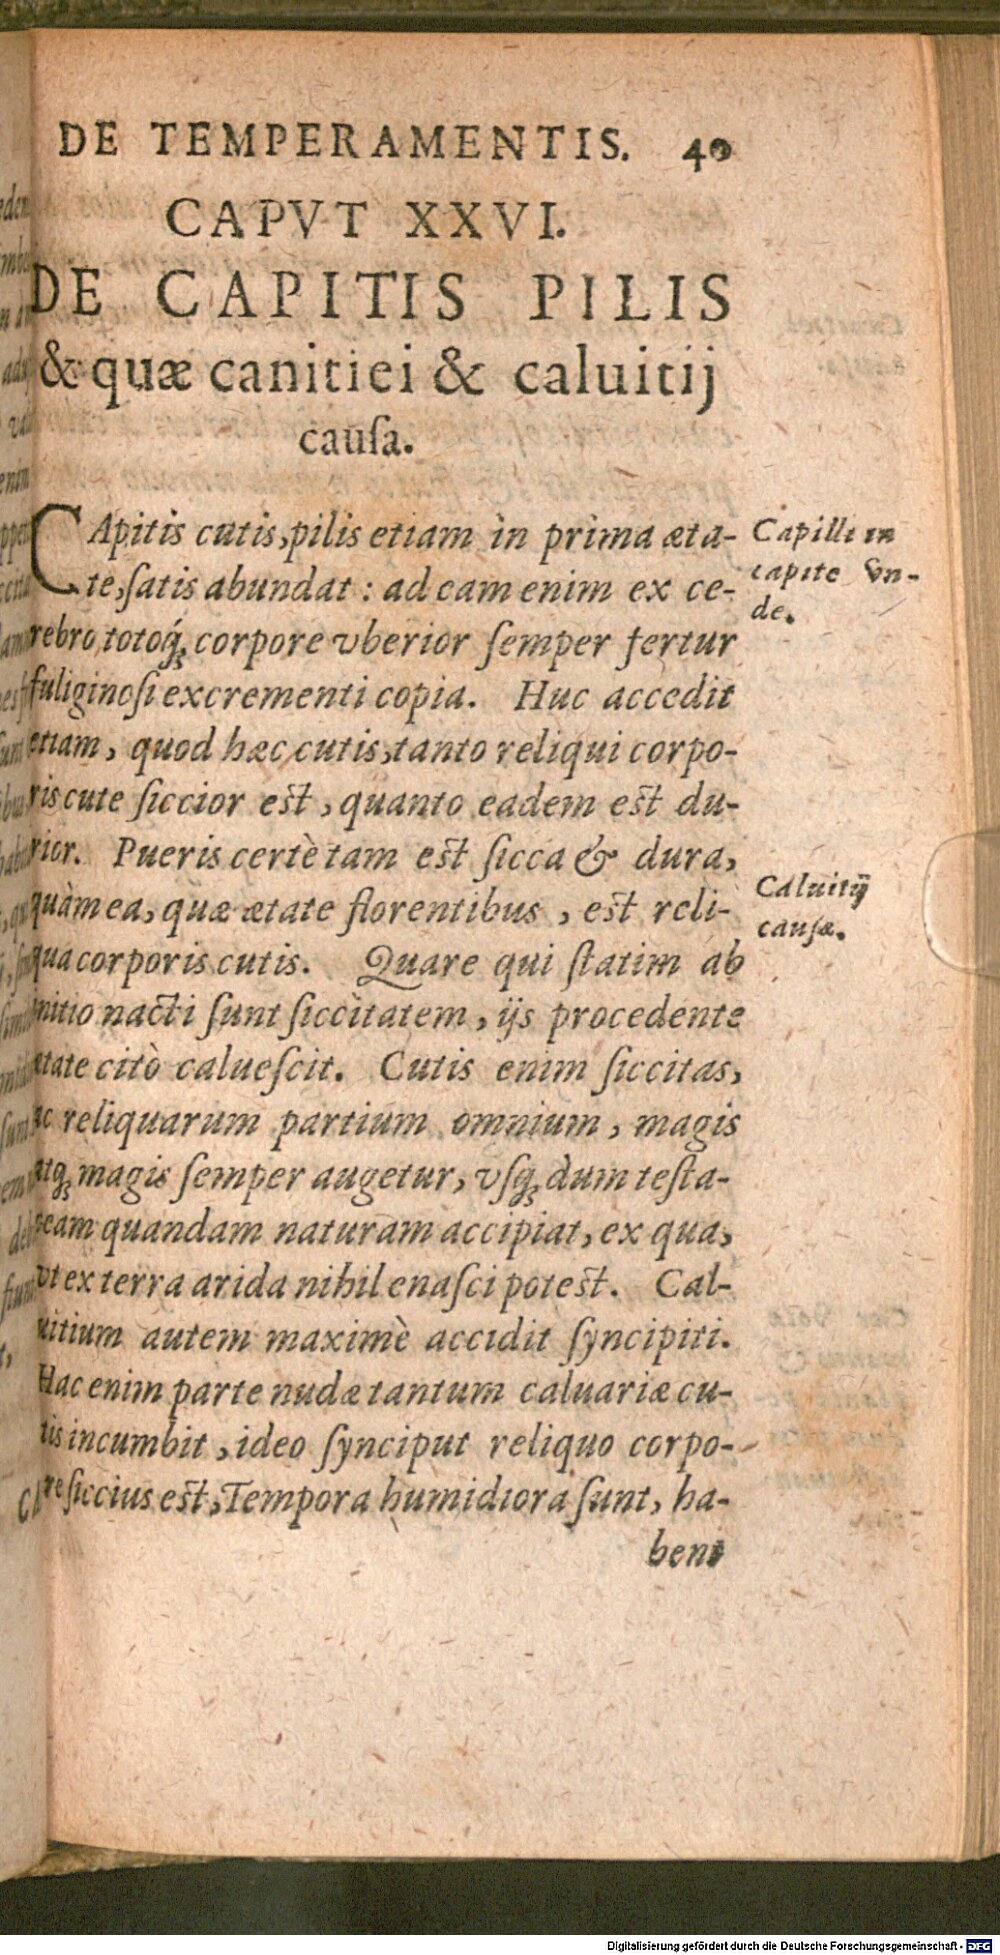 DE TEMPERAMENTIS. 40
CAPVT XXVI.
DE CAPITIS PILIS
& quæ canitiei & caluitij
cauſa.
CApitis cutis, pilis etiam in prima æta-
te, ſatis abundat : ad eam enim ex ce-
rebro totoq́ꝫ corpore vberior ſemper fertur
fuliginoſi excrementi copia. Huc accedit
etiam, quod hæc cutis, tanto reliqui corpo-
ris cute ſiccior est, quanto eadem est du-
rior. Pueris certè tam est ſicca & dura,
quàm ea, quæ ætate florentibus, est reli-
qua corporis cutis. Quare qui ſtatim ab
initio nacti ſunt ſiccitatem, ijs procedente
ætate citò calueſcit. Cutis enim ſiccitas,
ac reliquarum partium omnium, magis
atqꝫ magis ſemper augetur, vſqꝫ dum teſta-
ceam quandam naturam accipiat, ex qua,
vt ex terra arida nihil enaſci potest. Cal-
uitium autem maximè accidit ſyncipiti.
Hac enim parte nudæ tantum caluariæ cu-
tis incumbit, ideo ſynciput reliquo corpo-
re ſiccius est, Tempora humidiora ſunt, ha-
bent
Capilli in
capite vn-
de.
Caluitij
cauſæ.
Digitalisierung gefördert durch die Deutsche Forschungsgemeinschaft - DFG